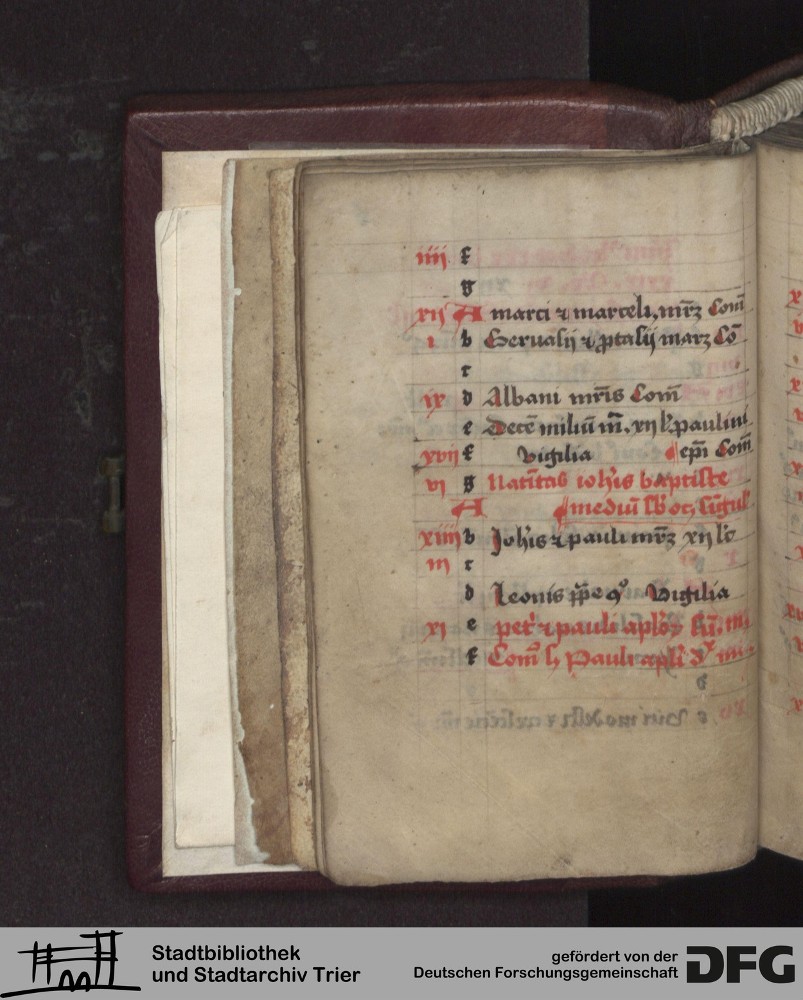 iiij f
g
xij A marci ⁊ marceli, mr̄ꝫ Com̄
i b Geruasij ⁊ ꝓtasij marꝫ Cō
c
ix d Albani mr̄is Com̄
e Decē miliū m̄. xij l᷒. paulini
xvij f vigilia ¶ ep̄i Com̄
vi g Natītas ioh̄is baptiste
A ¶ mediū
xiiij b Joh̄is ⁊ pauli mr̄ꝫ xij lc̄
iij c
d Leonis pp̄e ꝯ᷒ Vigilia
xj e petͥ ⁊ pauli aplōꝝ
f Com̄ Pauli apl̄i
Stadtbibliothek
und Stadtarchiv Trier
gefördert von der
Deutschen Forschungsgemeinschaft
DFG